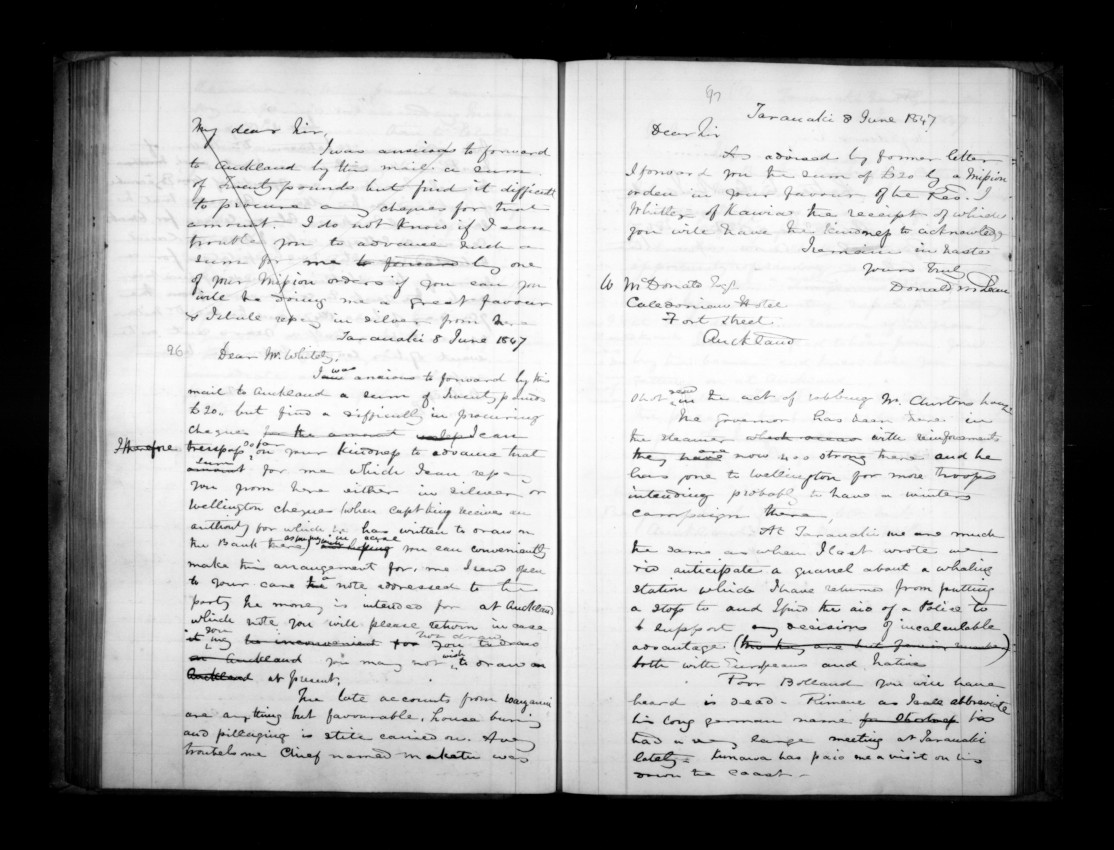 My dear Sir,
I was anxious to forward
to Auckland by this mail a sum
of Twenty pounds but find it difficult
to procure any cheques for that
amount. I do not know if I can
trouble you to advance such a
sum for me to forward by one
of your Mission orders if you can you
will be doing me a great favour
& I shall repay in silver from here
Taranaki 8 June 1847
96 Dear Mr. Whitely,
I am was anxious to forward by this
mail to Auckland a sum of Twenty pounds
£20,, but find a difficulty in procuring
cheques for the amount I can
I therefore trespass so far on your kindness to advance that
amount sum for me which I can repay
you from here either in silver or
Wellington cheques (when Capt King receives an
authority for which he has written to draw on
the Bank there) in case you can conveniently
make this arrangement for me I send open
to your care the a note addressed to the
party the money is intended for at Auckland
which note you will please return in case
it you be inconvenient for you to draw
on Auckland you may not wish to draw on
Auckland at present.
The late accounts from Wanganui
are anything but favourable. House burning
and pillaging is still carried on. A very
troublesome Chief named Maketu was
97
Taranaki 8 June 1847
Dear Sir
As advised by former letter
I forward you the sum of £20 by a Mission
order in your favour of the Rev. J.
Whitley of Kawia the receipt of which
you will have the kindness to acknowledge
I remain in haste
yours truly
Donald McLean
To McDonald Esqr.
Caledonian Hotel
Fort Street.
Auckland
shot in the act of robbing Mr. Churtons house
The Governor has been here in
the steamer which with reinforcements
they have are now 400 strong there and he
has gone to Wellington for more troops
intending probably to have a winters
campaign there,
At Taranaki we are much
the same as when I last wrote we
did anticipate a quarrel about a whaling
station which I have returned from putting
a stop to and I find the aid of a Police to
support my decisions of incalculable
advantage (tho they are but few in number)
both with Europeans and natives
Poor Bolland you will have
heard is dead - Rimene as I call abbreviate
his long german name for shortness has
had a very large meeting at Taranaki
lately - Turaroa has paid me a visit on his
down the coast -